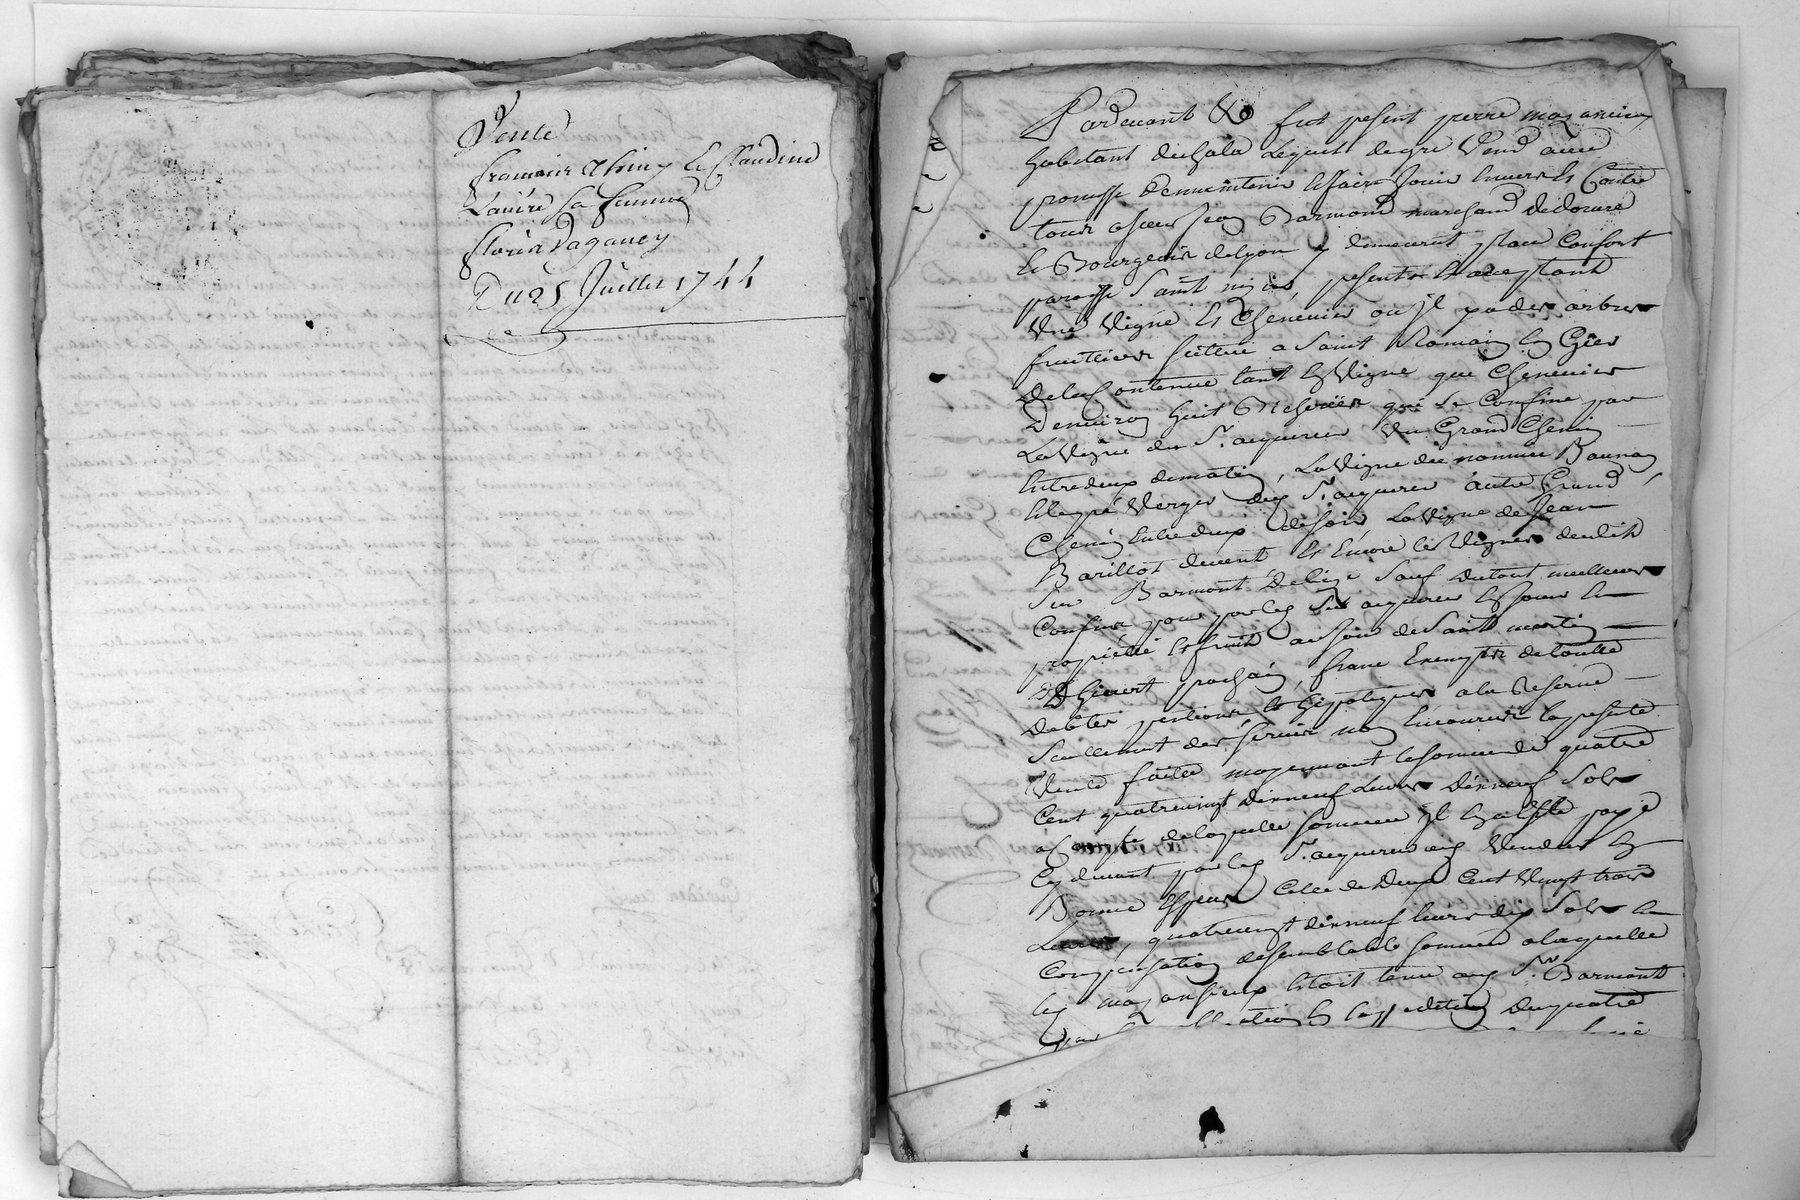 Vente
francois thiny et Claudine
sa femme
fleurie Dagancy
Du 25 Juillet 1744
Pardevant No fut pesent pierre mazancieu
habitant dechala lequel degré Vend avec
promesse demaintenir et faire Jouir Envers et Contre
tous asieur Jean Barmond marchand dedorure
et Bourgeois delyon y demeurant place Confort
paroisse Saint nizier pesent et acceptant
Une Vigne et Chenevier ou jl ya des arbres
fruittiers scittué a Saint Romain en Gier
Delacontenue tant En Vigne que Chenevier
Denviron huit Bicherées qui se Confine par
La Vigne du Sr. acquereur Un Grand Chemin
Entredeux dematin, La Vigne de nommée
Verger dud Sr. acquereur autre Grand
Chemin Entredeux desoir La Vigne de Jean
Barillot devent Et Encore les Vignes dudit
Sieur Barmont debize Sauf dutout meilleurs
Confins pour par led Sr. acquereur En Jouir En
propriété et fruits au jour de Saint martin
D'hivert prochain, franc Exempte detoutte
debtes pentions et hippoteques ala Reserve
Seullement des servis non Encourus la pesente
Vente faitte moyennant la somme de quatre
Cent quatrevingt dixneuf Livres dixneuf Sols
a Compte delaquelle somme jl aesté payé
Cy devant par led Sr. acquereur aud Vendeur En
Bonne Espece Celle de Deux Cent Vingt trois
Livres, quatrevingt dixneuf livres dix Sols En
Compensation desemblable somme alaquelle
led mazancieux Etoit tenu aud Sr. Barmont